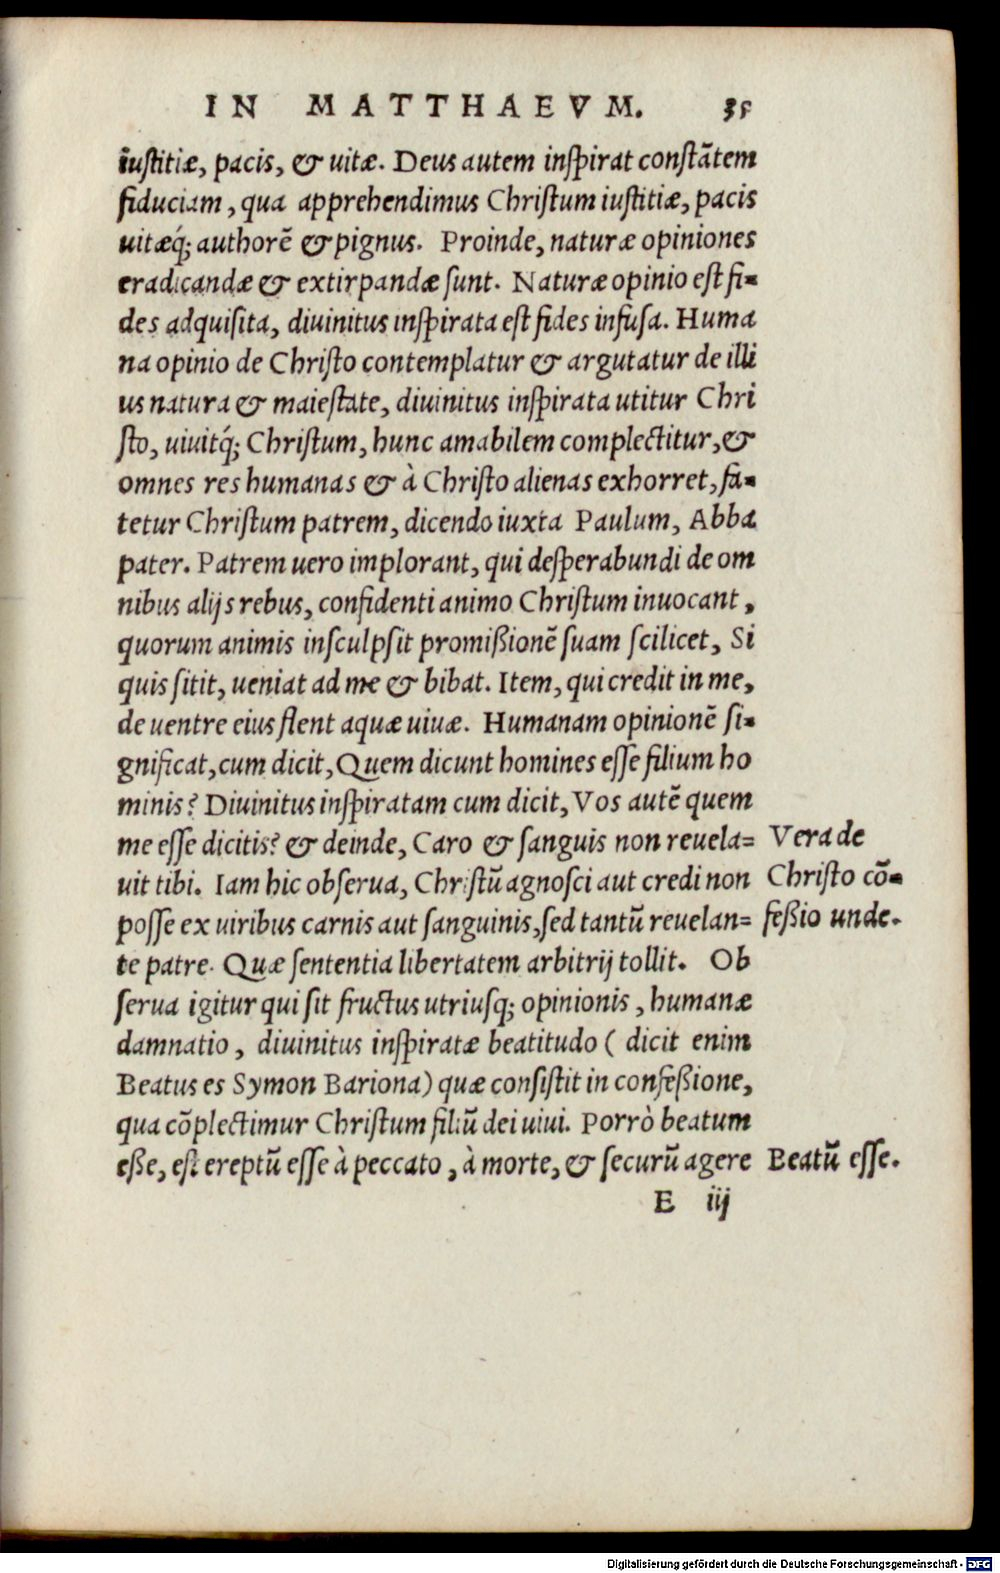 IN MATTHAEVM. 35
iustitiæ, pacis, & uitæ. Deus autem inspirat constãtem
fiduciam, qua apprehendimus Christum iustitiæ, pacis
uitæq́; authorẽ & pignus. Proinde, naturæ opiniones
eradicandæ & extirpandæ sunt. Naturæ opinio est fi=
des adquisita, diuinitus inspirata est fides infusa. Huma
na opinio de Christo contemplatur & argutatur de illi
us natura & maiestate, diuinitus inspirata utitur Chri
sto, uiuitq́; Christum, hunc amabilem complectitur, &
omnes res humanas & à Christo alienas exhorret, fa=
tetur Christum patrem, dicendo iuxta Paulum, Abba
pater. Patrem uero implorant, qui desperabundi de om
nibus alijs rebus, confidenti animo Christum inuocant,
quorum animis insculpsit promißionẽ suam scilicet, Si
quis sitit, ueniat ad me & bibat. Item, qui credit in me,
de uentre eius flent aquæ uiuæ. Humanam opinionẽ si=
gnificat, cum dicit, Quem dicunt homines esse filium ho
minis? Diuinitus inspiratam cum dicit, Vos autẽ quem
me esse dicitis? & deinde, Caro & sanguis non reuela=
uit tibi. Iam hic obserua, Christũ agnosci aut credi non
posse ex uiribus carnis aut sanguinis, sed tantũ reuelan=
te patre. Quæ sententia libertatem arbitrij tollit. Ob
serua igitur qui sit fructus utriusq; opinionis, humanæ
damnatio, diuinitus inspiratæ beatitudo ( dicit enim
Beatus es Symon Bariona) quæ consistit in confeßione,
qua cõplectimur Christum filiũ dei uiui. Porrò beatum
eße, est ereptũ esse à peccato, à morte, & securũ agere
E iij
Vera de
Christo cõ=
feßio unde.
Beatũ esse.
Digitalisierung gefördert durch die Deutsche Forschungsgemeinschaft - DFG